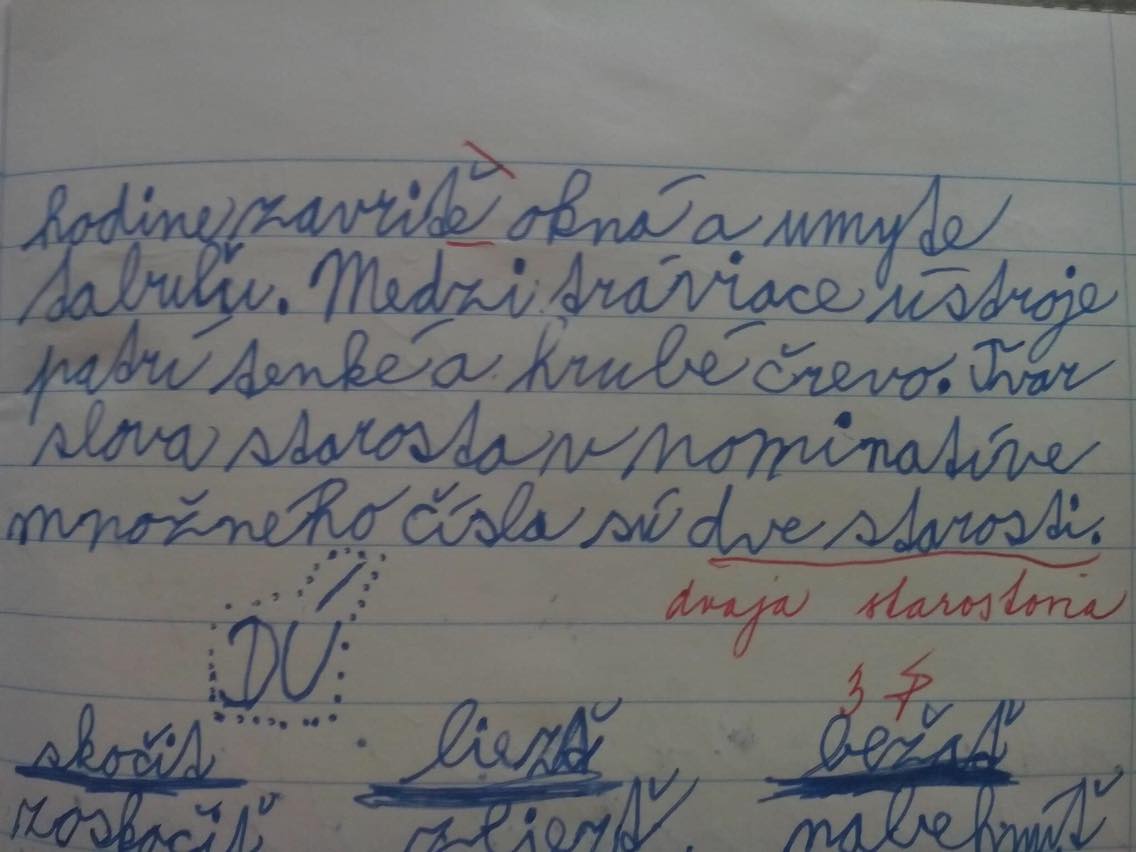 hodine zavriťe okná a umyte
tabuľu. Medzi tráviace ústroje
patrí tenké a hrubé črevo. Tvar
slova starosta v nominatíve
množného čísla sú dve starosti.
dvaja starostovia
DÚ
3
skočiť liezť bežať
zoskočiť zliezť nabehnúť